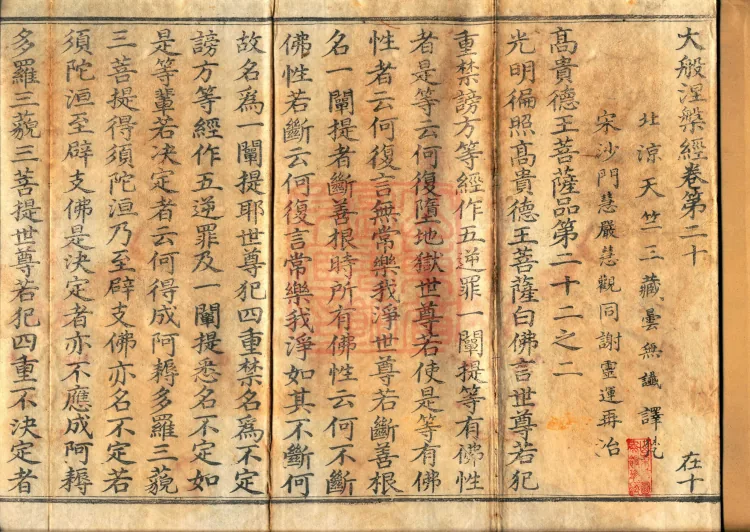 大般涅槃經卷第二十 在十
北涼天竺三藏曇無讖譯梵
宋沙門慧嚴慧觀同謝靈運再治
高貴德王菩薩品第二十二之二
光明徧照高貴德王菩薩白佛言世尊若犯
重禁謗方等經作五逆罪一闡提等有佛性
者是等云何復墮地獄世尊若使是等有佛
性者云何復言無常樂我淨世尊若斷善根
名一闡提者斷善根時所有佛性云何不斷
佛性若斷云何復言常樂我淨如其不斷何
故名為一闡提耶世尊犯四重禁名為不定
謗方等經作五逆罪及一闡提悉名不定如
是等輩若決定者云何得成阿耨多羅三藐
三菩提得須陀洹乃至辟支佛亦名不定若
須陀洹至辟支佛是決定者亦不應成阿耨
多羅三藐三菩提世尊若犯四重不決定者